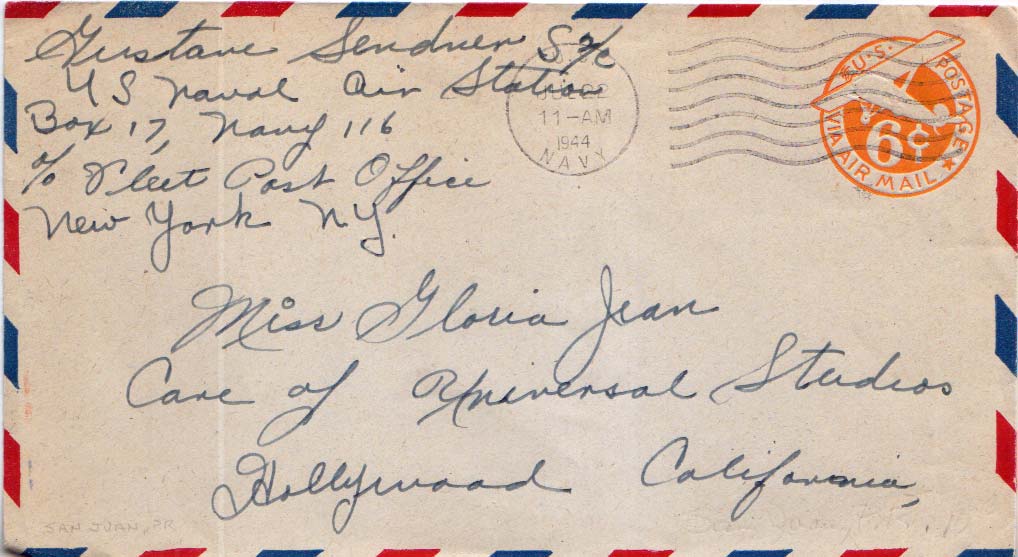 Gustave Sendner S 2/c
US Naval Air Station
Box 17, Navy 116
c/o Fleet Post Office
New York N.Y.
11-AM
1944
NAVY
U.S. POSTAGE
6¢
VIA AIR MAIL
Miss Gloria Jean
Care of Universal Studios
Hollywood California,
SAN JUAN, PR